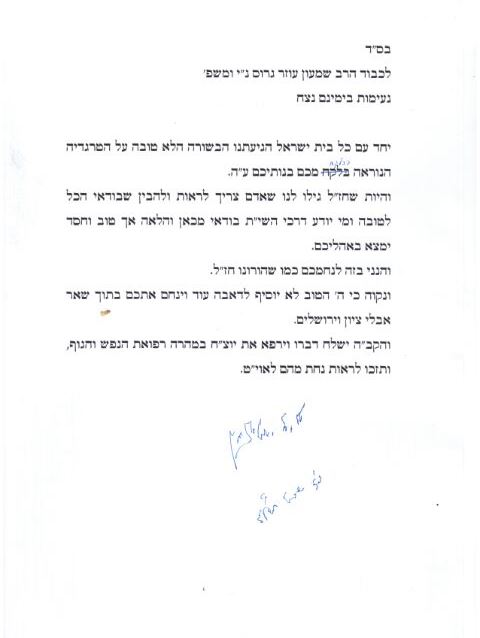 בס"ד
לכבוד הרב שמעון עוזר גרוס נ"י ומשפ'
נעימות בימינם נצח
יחד עם כל בית ישראל הגיעתנו הבשורה הלא טובה על הטרגדיה
הנוראה מכם בנותיכם ע"ה.
והיות שחז"ל גילו לנו שאדם צריך לראות ולהבין שבודאי הכל
לטובה ומי יודע דרכי השי"ת בודאי מכאן והלאה אך טוב וחסד
ימצא באהליכם.
והנני בזה לנחמכם כמו שהורונו חז"ל.
ונקוה כי ה' הטוב לא יוסיף לדאבה עוד וינחם אתכם בתוך שאר
אבלי ציון וירושלים.
והקב"ה ישלח דברו וירפא את יוצ"ח במהרה רפואת הנפש והגוף,
ותזכו לראות נחת מהם לאוי"ט.